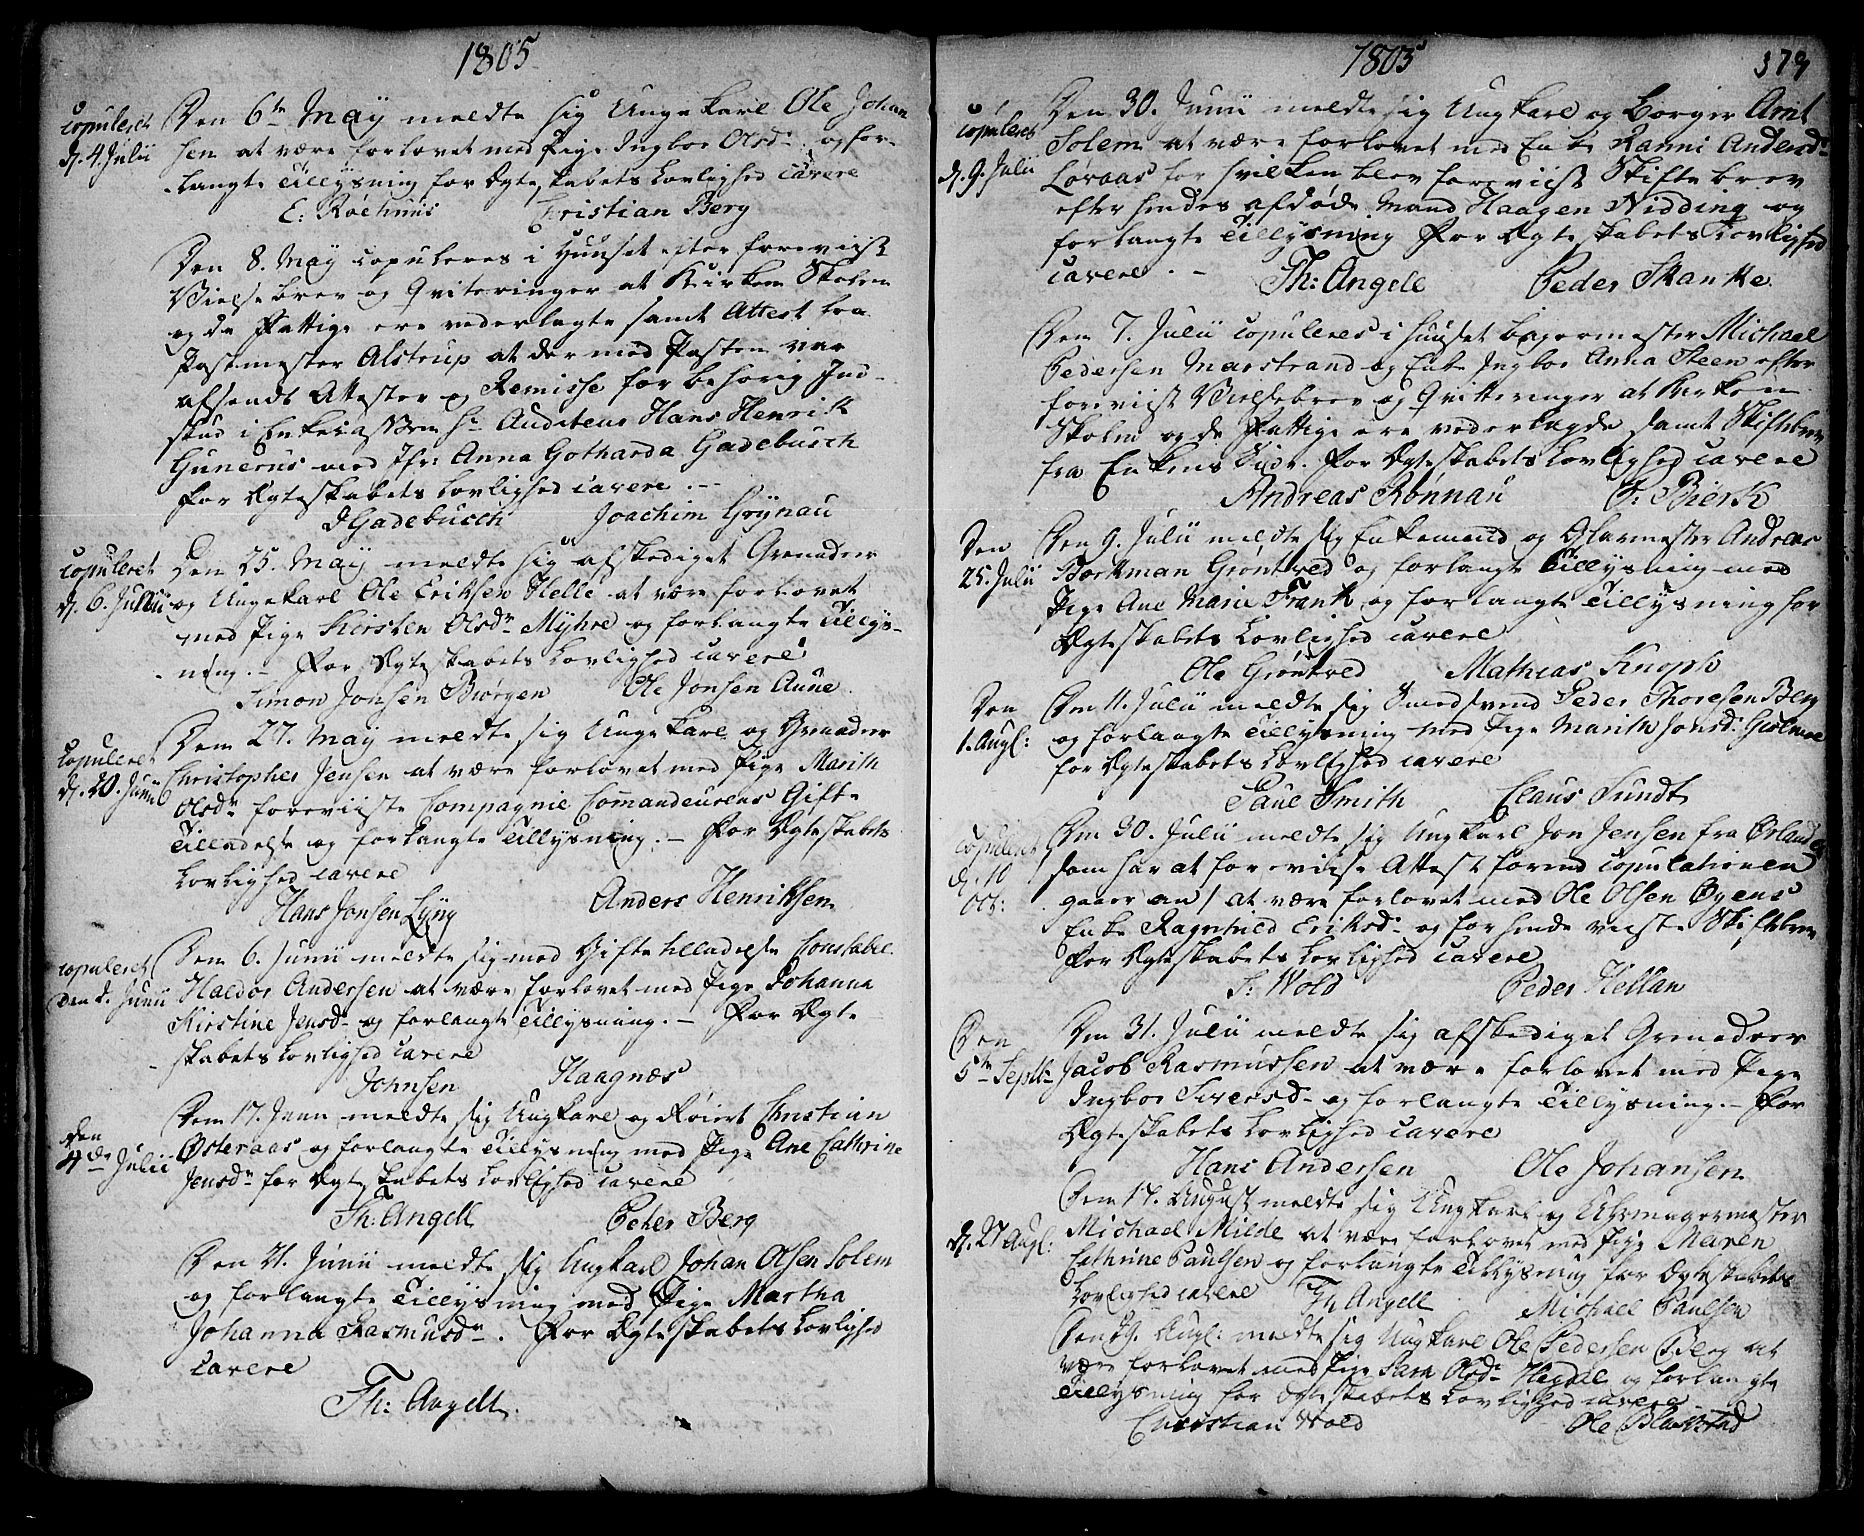 1805
copuleret
d. 4. Julii
Den 6te May meldte sig Ungekarl Ole Johan
sen at være forlovet med Pige Ingbor Olsdr og for-
langte Tillysning for Ægteskabets Lovlighed cavere
E: Röchnis Christian Berg
Den 8. May copuleres i Huuset efter foreviist
Vielsebrev og Qviteringer at Kirken Skolen
og de Fattige ere vederlagte samt Attest fra
Postmester Alstrup at der med Posten var
afsendt Attester og Remisse for behörig Ind-
skud i Enkecassen Hr Auditeur Hans Henrik
Gunerus med Jfr: Anna Gotharda Gadebusch
for Ægteskabets Lovlighed cavere
Gadebusch Joachim Grÿnau
copuleret
d. 6. Julii
Den 25. May meldte sig afskediget Grenadeer
og Ungekarl Ole Eriksen Helle at være forlovet
med Pige Kirsten Olsdr Myhre og forlangte Tillys-
ning. - For Ægteskabets Lovlighed cavere
Simon Jonsen Börgen Ole Jonsen Aune
copuleret
d. 20. Junii
Den 27. May meldte sig Ungekarl og Grenadeer
Christopher Jensen at være forlovet med Pige Marith
Olsdr foreviiste Compagnie Comandeurens Gifte
Tilladelse og forlangte Tillysning. - For Ægteskabets
Lovlighed cavere
Hans Jonsen Lyng Anders Henriksen
copuleret
den Junii
Den 6. Junii meldte sig med Gifte tilladelse Constabel
Haldor Andersen at være forlovet med Pige Johanna
Kirstine Jensdr og forlangte Tillysning. - For Ægte-
skabets Lovlighed cavere
Johnsen Haagnæs
den
4de Julii
Den 17. Junii meldte sig Ungkarl og Christian
Østeraas og forlangte Tillysning med Pige Ane Cathrine
Jensdr for Ægteskabets Lovlighed cavere
Th: Angell Peter Berg
Den 21. Junii meldte sig Ungkarl Johan Olsen Solem
og forlangte Tillysning med Pige Martha
Johanna Rasmusdr. For Ægteskabets Lovlighed
cavere
Th: Angell.
1805
379
copuleret
d. 9. Julii
Den 30. Junii meldte sig Ungkarl og Borger Arnt
Solem at være forlovet med Enke Ranni Andersdr
Løraas for hvilken blev foreviist Skiftebrev
efter hendes afdøde Mand Haagen Nidding og
forlangte Tillysning For Ægteskabets Lovlighed
cavere. - Th: Angell Peder Skanke
Den 7. Julii copuleres i Huuset Bagermester Michael
Pedersen Marstrand og Enke Ingbor Anna Steen efter
foreviist Vielsebrev og Qvitteringer at Kirken
Skolen og de Fattige ere vederlagde samt Skiftebrev
fra Enkens Side. For Ægteskabets Lovlighed cavere
Andreas Rønnau Bierk
Den
25. Julii
Den 9. Julii meldte sig Enkemand og Glarmester Andreas
Borkman Grøntved og forlangte Tillysning med
Pige Ane Marie Frank og forlangte Tillysning for
Ægteskabets Lovlighed cavere
Ole Grøntved Mathias Knoph
Den
1. Augl:
Den 11. Julii meldte sig Smedsvend Peder Thoresen Berg
og forlangte Tillysning med Pige Marith Jonsdr
for Ægteskabets Lovlighed cavere
Paul Smith Claus Sundt
Copuleret
d. 10
Oct:
Den 30. Julii meldte sig Ungkarl Jon Jensen fra Ørland
som har at forevise Attest forend Copulationen
gaaer an / at være forlovet med Ole Olsen Øyens
Enke Ragnhild Eriksdr og for hende viiste Skiftebrev
For Ægteskabets Lovlighed cavere
Wold Peder Hellan
Den
5te Septbr
Den 31. Julii meldte sig afskediget Grenadeer
Jacob Rasmussen at være forlovet med Pige
Ingbor Siversdr og forlangte Tillysning. - For
Ægteskabets Lovlighed cavere
Hans Andersen Ole Johansen
d. 27 Augl:
Den 17. August meldte sig Ungkarl og Uhrmagermester
Michael Milde at være forlovet med Pige Maren
Cathrine Paulsen og forlangte Tillysning for Ægteskabets
Lovlighed cavere Th. Angell Michael Paulsen
Den 29. Augl: meldte sig Ungkarl Ole Pedersen Berg at
være forlovet med Pige Sara Olsdr Hegdal og forlangte
Tillysning for Ægteskabets Lovlighed cavere
Christian Wold Ole